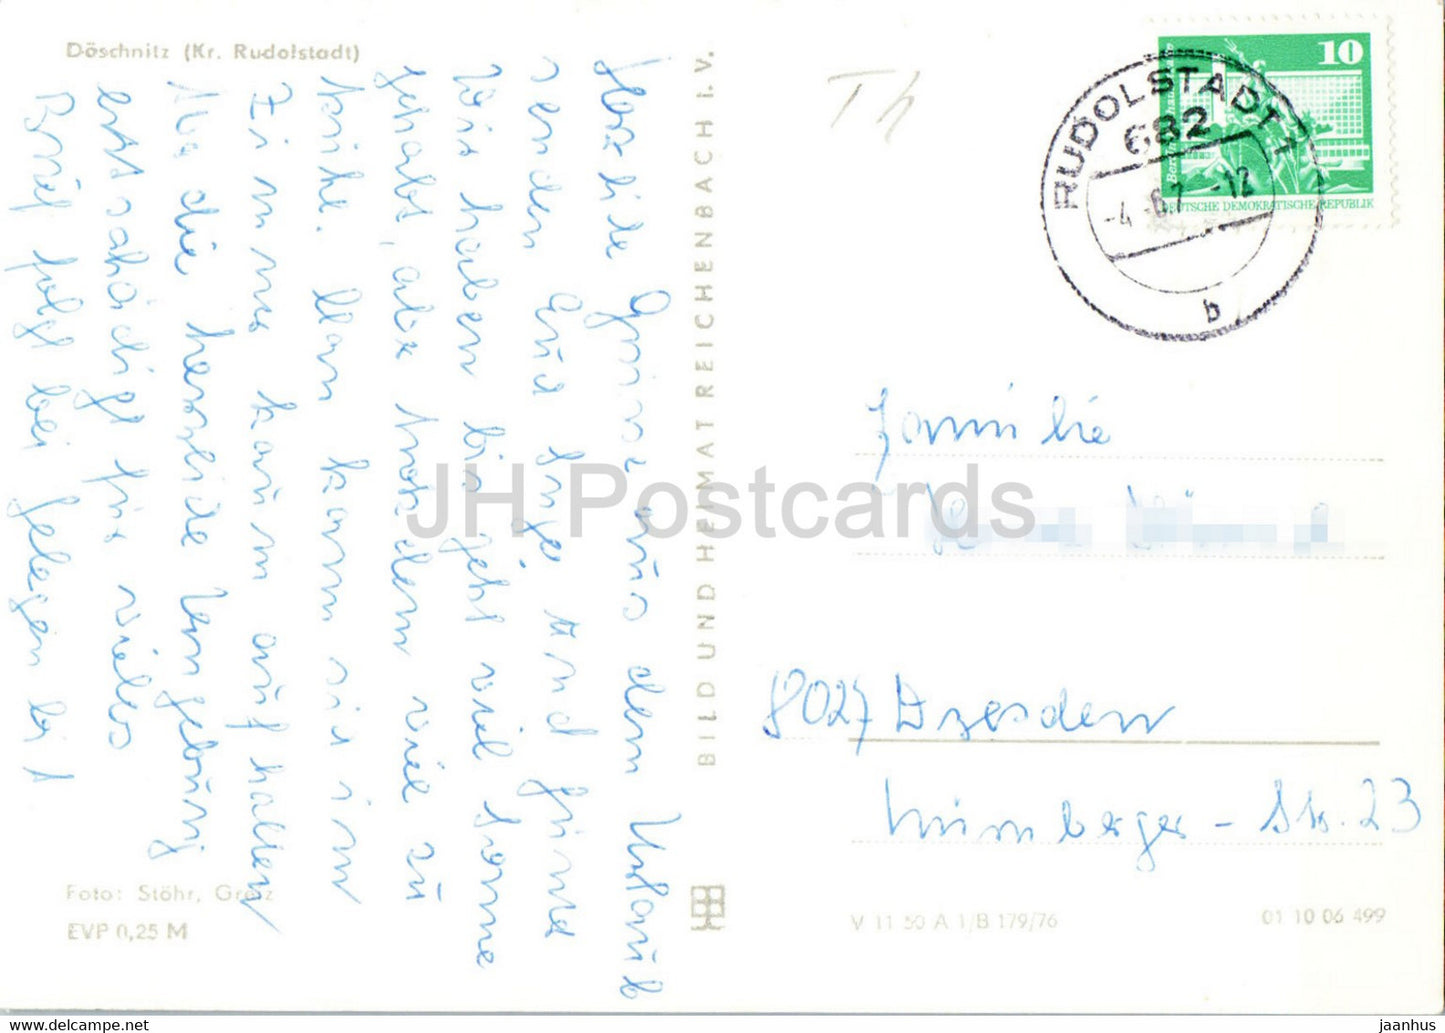 Döschnitz (Kr. Rudolstadt)
Herzliche Grüsse aus dem Urlaub
senden Euch Inge und
Wir haben bis jetzt viel Sonne
gehabt, aber trotzdem viel zu
kühl. Man kann sich im
Zimmer kaum aufhalten
die herrliche Umgebung
entschädigt für vieles
Brief folgt bei
Foto: Stöhr, Greiz
EVP 0,25 M
BILD UND HEIMAT REICHENBACH I. V.
Th
RUDOLSTADT 1
682
-4.-6.7 -12
b
10
DEUTSCHE DEMOKRATISCHE REPUBLIK
Familie
8027 Dresden
Nürnberger-Str. 23
V 11 50 A 1/B 179/76
01 10 06 499
JH Postcards
jaanhus